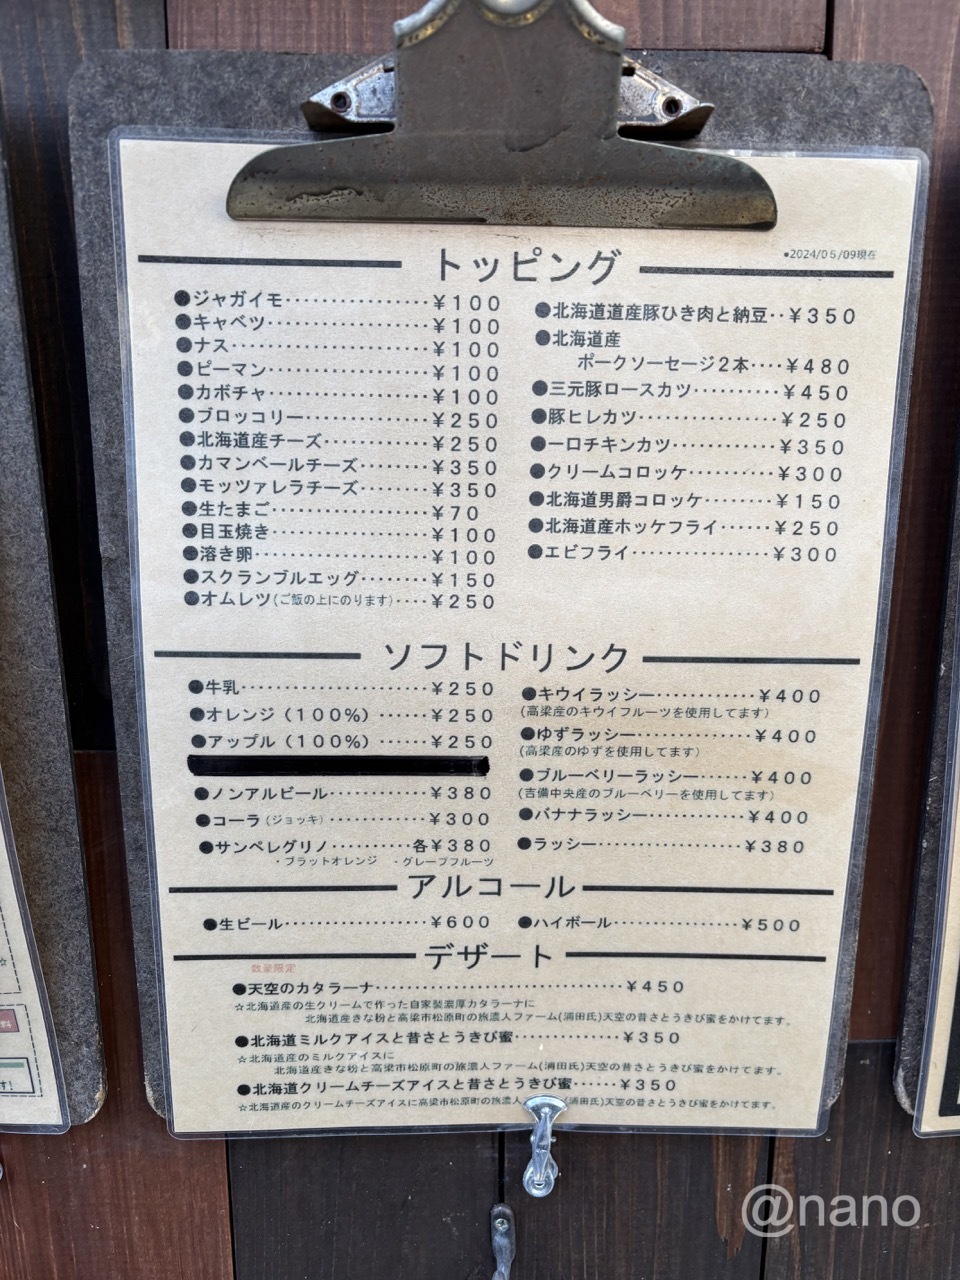 トッピング
●2024/05/09現在
●ジャガイモ················¥100
●キャベツ··················¥100
●ナス······················¥100
●ピーマン··················¥100
●カボチャ··················¥100
●ブロッコリー··············¥250
●北海道産チーズ············¥250
●カマンベールチーズ········¥350
●モッツァレラチーズ········¥350
●生たまご··················¥70
●目玉焼き··················¥100
●溶き卵····················¥100
●スクランブルエッグ········¥150
●オムレツ(ご飯の上にのります)····¥250
●北海道道産豚ひき肉と納豆··¥350
●北海道産
ポークソーセージ2本····¥480
●三元豚ロースカツ··········¥450
●豚ヒレカツ················¥250
●一口チキンカツ············¥350
●クリームコロッケ··········¥300
●北海道男爵コロッケ········¥150
●北海道産ホッケフライ······¥250
●エビフライ················¥300
ソフトドリンク
●牛乳······················¥250
●オレンジ(100%)······¥250
●アップル(100%)······¥250
●ノンアルビール············¥380
●コーラ(ジョッキ)············¥300
●サンペレグリノ··········各¥380
・ブラットオレンジ ・グレープフルーツ
●キウイラッシー············¥400
(高梁産のキウイフルーツを使用してます)
●ゆずラッシー··············¥400
(高梁産のゆずを使用してます)
●ブルーベリーラッシー······¥400
(吉備中央産のブルーベリーを使用してます)
●バナナラッシー············¥400
●ラッシー··················¥380
アルコール
●生ビール··················¥600
●ハイボール················¥500
デザート
数量限定
●天空のカタラーナ······························¥450
☆北海道産の生クリームで作った自家製濃厚カタラーナに
北海道産きな粉と高梁市松原町の旅濃人ファーム(浦田氏)天空の昔さとうきび蜜をかけてます。
●北海道ミルクアイスと昔さとうきび蜜··············¥350
☆北海道産のミルクアイスに
北海道産きな粉と高梁市松原町の旅濃人ファーム(浦田氏)天空の昔さとうきび蜜をかけてます。
●北海道クリームチーズアイスと昔さとうきび蜜······¥350
☆北海道産のクリームチーズアイスに高梁市松原町の旅濃人ファーム(浦田氏)天空の昔さとうきび蜜をかけてます。
@nano